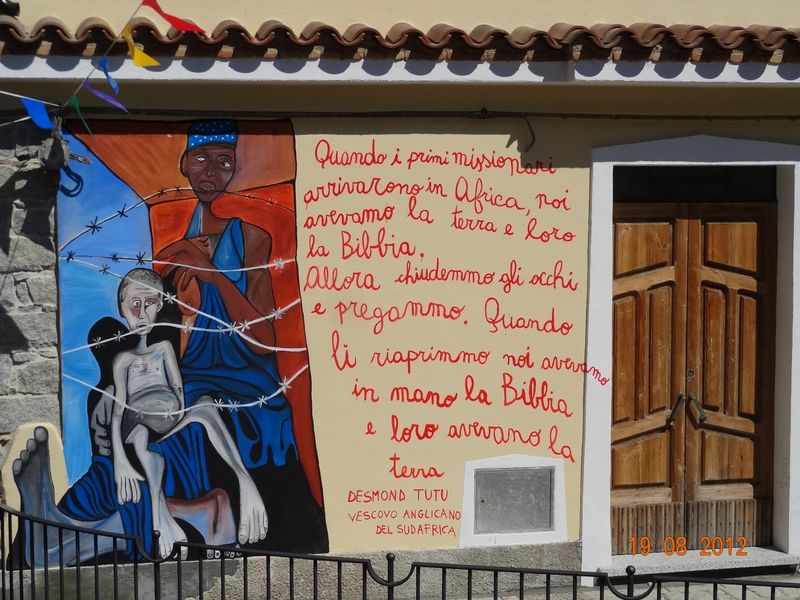 Quando i primi missionari
arrivarono in Africa, noi
avevamo la terra e loro
la Bibbia.
Allora chiudemmo gli occhi
e pregammo. Quando
li riaprimmo noi avevamo
in mano la Bibbia
e loro avevano la
terra
DESMOND TUTU
VESCOVO ANGLICANO
DEL SUDAFRICA
19 08 2012